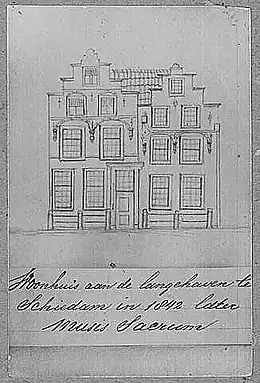 Woonhuis aan de langehaven te
Schiedam in 1842 later
Musis Sacrum